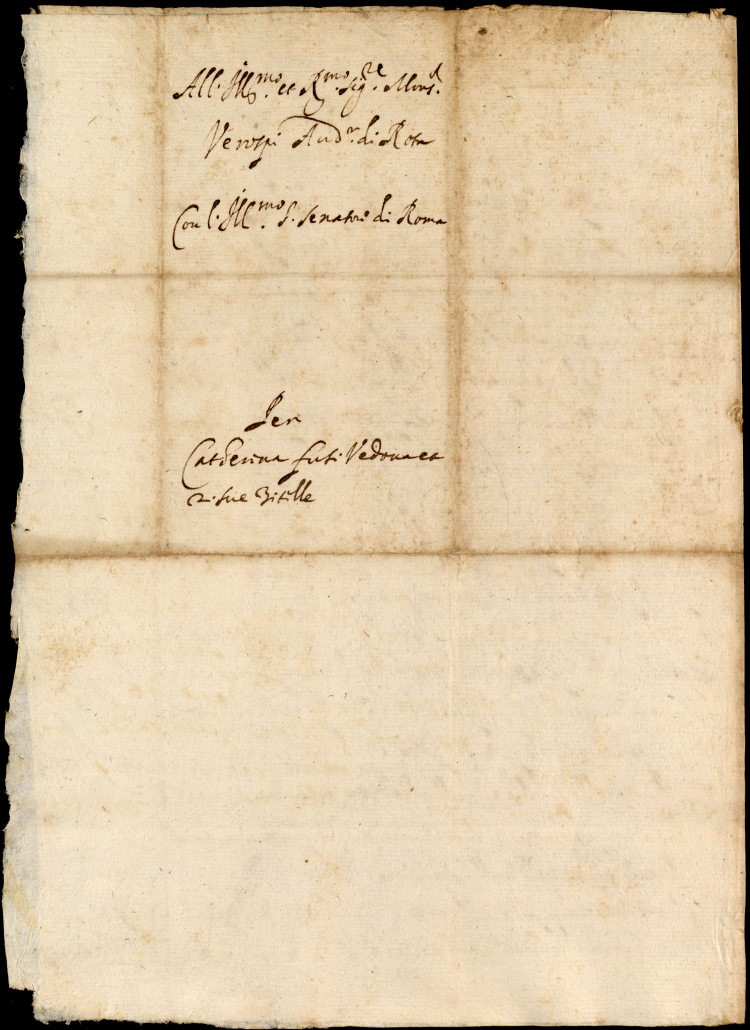 All'Ill.mo et R.mo Sig.re Mons.r
Verospi Aud.r di Rota
Con l'Ill.mo S. Senatore di Roma
Per
Catherina Vedova et
2. sue Zitelle